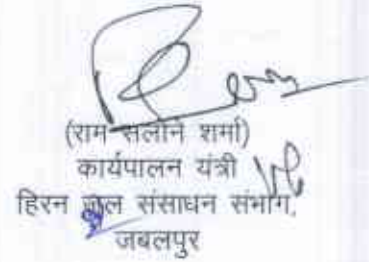 (राम सलोने शर्मा)
कार्यपालन यंत्री
हिरन जल संसाधन संभाग,
जबलपुर